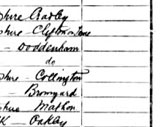 shire Cradley
shire Clifton on Teme
— Doddenham
do
shire Collington
— Bromyard
shire Mathon
K — Oakley